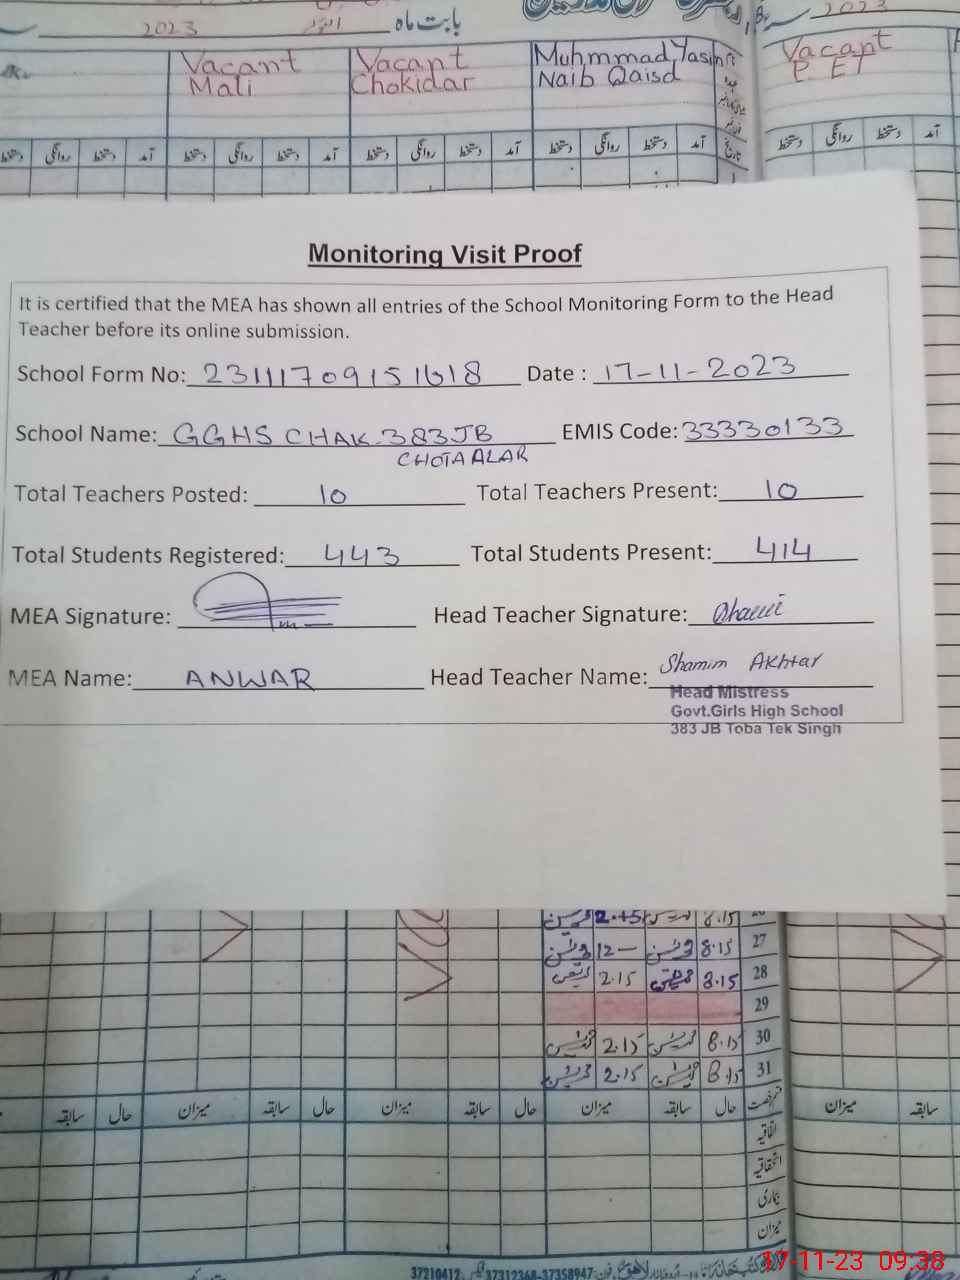 2023 اکتوبر بابت ماہ
2023
Vacant
Mali
Vacant
Chokidar
Muhmmad Yasin
Naib Qaisd
Vacant
P ET
دستخط روانگی دستخط آمد دستخط روانگی دستخط آمد دستخط روانگی دستخط آمد دستخط روانگی دستخط آمد تاریخ
دستخط روانگی دستخط آمد
Monitoring Visit Proof
It is certified that the MEA has shown all entries of the School Monitoring Form to the Head
Teacher before its online submission.
School Form No: 23111709151618 Date : 17-11-2023
School Name: GGHS CHAK-383JB EMIS Code: 33330133
CHOTA ALAR
Total Teachers Posted: 10 Total Teachers Present: 10
Total Students Registered: 443 Total Students Present: 414
MEA Signature: Head Teacher Signature:
MEA Name: ANWAR Head Teacher Name: Shamim Akhtar
Head Mistress
Govt.Girls High School
383 JB Toba Tek Singh
2.45 8.15 26
12 8.15 27
2.15 8.15 28
29
2.15 8.15 30
2.15 8.15 31
سابقہ حال میزان سابقہ حال میزان سابقہ حال میزان سابقہ حال قسم رخصت
میزان سابقہ
اتفاقیہ
استحقاقیہ
بیماری
میزان
لاہور فون: 37358947-37312368 37210412
17-11-23 09:38